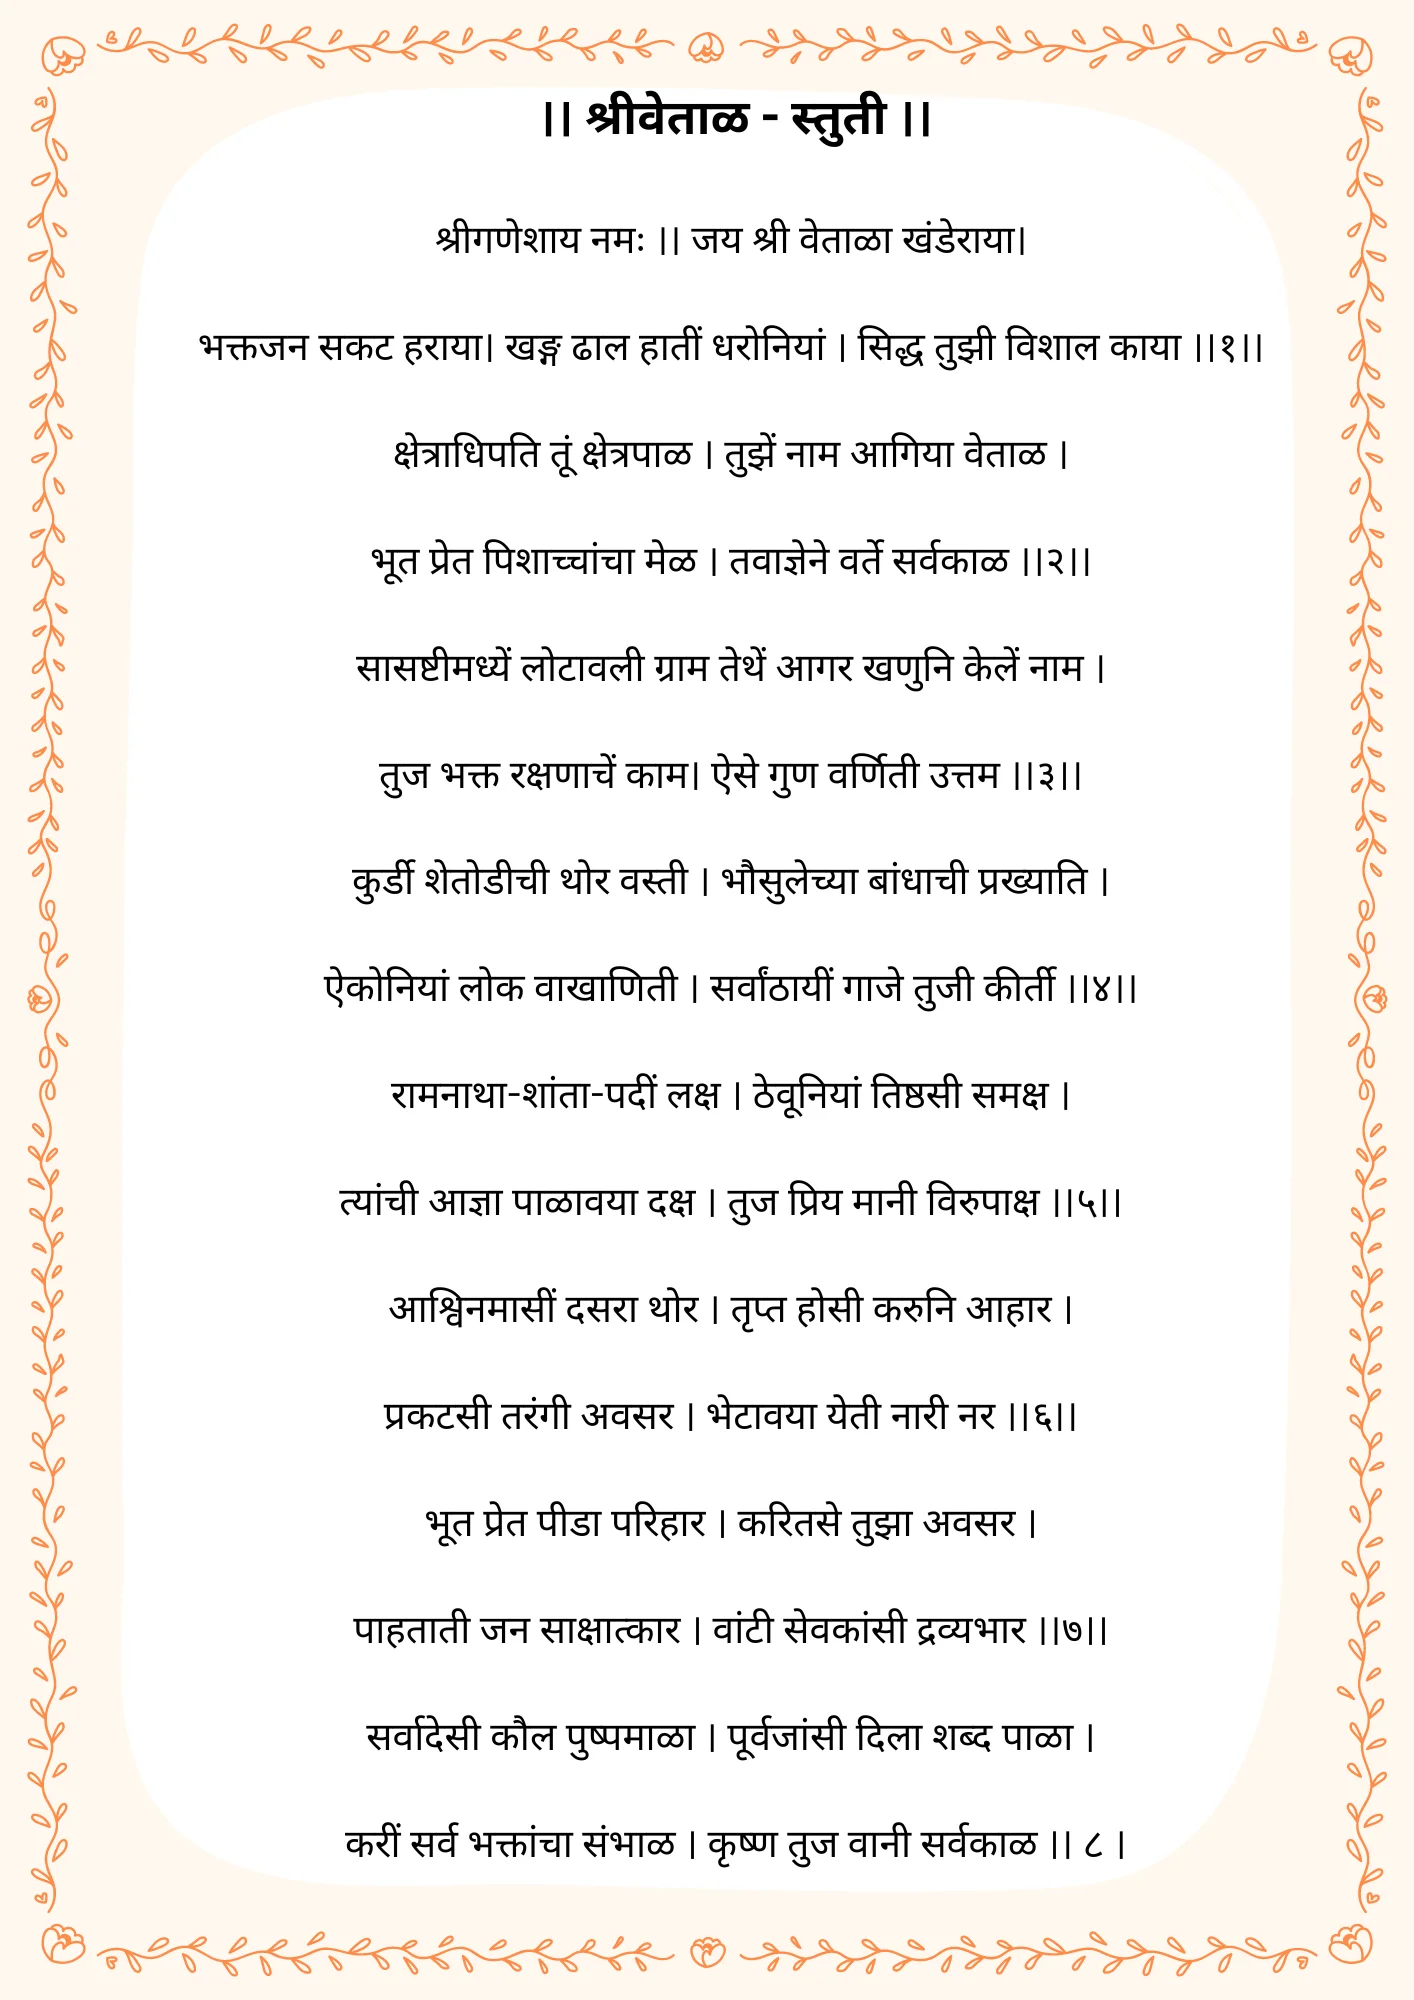 ।। श्रीवेताळ - स्तुती ।।
श्रीगणेशाय नमः ।। जय श्री वेताळा खंडेराया।
भक्तजन सकट हराया। खङ्ग ढाल हातीं धरोनियां । सिद्ध तुझी विशाल काया ।।१।।
क्षेत्राधिपति तूं क्षेत्रपाळ । तुझें नाम आगिया वेताळ ।
भूत प्रेत पिशाच्चांचा मेळ । तवाज्ञेने वर्ते सर्वकाळ ।।२।।
सासष्टीमध्यें लोटावली ग्राम तेथें आगर खणुनि केलें नाम ।
तुज भक्त रक्षणाचें काम। ऐसे गुण वर्णिती उत्तम ।।३।।
कुर्डी शेतोडीची थोर वस्ती । भौसुलेच्या बांधाची प्रख्याति ।
ऐकोनियां लोक वाखाणिती । सर्वांठायीं गाजे तुजी कीर्ती ।।४।।
रामनाथा-शांता-पदीं लक्ष । ठेवूनियां तिष्ठसी समक्ष ।
त्यांची आज्ञा पाळावया दक्ष । तुज प्रिय मानी विरुपाक्ष ।।५।।
आश्विनमासीं दसरा थोर । तृप्त होसी करुनि आहार ।
प्रकटसी तरंगी अवसर । भेटावया येती नारी नर ।।६।।
भूत प्रेत पीडा परिहार । करितसे तुझा अवसर ।
पाहताती जन साक्षात्कार । वांटी सेवकांसी द्रव्यभार ।।७।।
सर्वादेसी कौल पुष्पमाळा । पूर्वजांसी दिला शब्द पाळा ।
करीं सर्व भक्तांचा संभाळ । कृष्ण तुज वानी सर्वकाळ ।। ८ ।